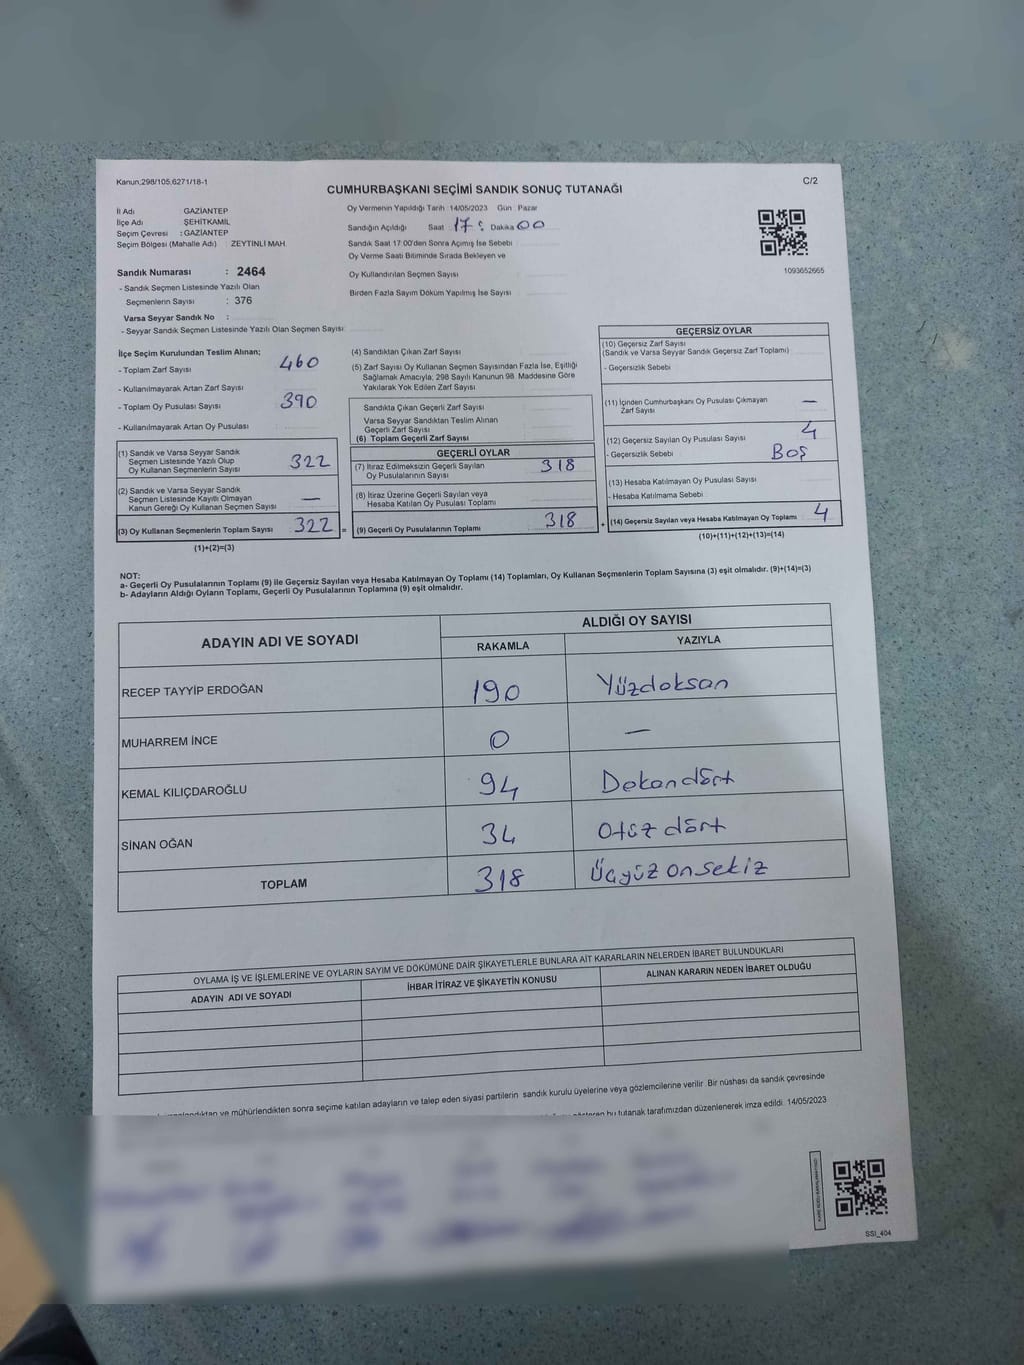 Kanun;298/105,6271/18-1
C/2
CUMHURBAŞKANI SEÇİMİ SANDIK SONUÇ TUTANAĞI
İl Adı GAZİANTEP
İlçe Adı ŞEHİTKAMİL
Seçim Çevresi : GAZİANTEP
Seçim Bölgesi (Mahalle Adı) : ZEYTINLİ MAH.
Sandık Numarası : 2464
- Sandık Seçmen Listesinde Yazılı Olan
Seçmenlerin Sayısı : 376
Varsa Seyyar Sandık No :
- Seyyar Sandık Seçmen Listesinde Yazılı Olan Seçmen Sayısı:
Oy Vermenin Yapıldığı Tarih : 14/05/2023 Gün : Pazar
Sandığın Açıldığı Saat 17: Dakika 00
Sandık Saat 17:00'den Sonra Açımış İse Sebebi
Oy Verme Saati Bitiminde Sırada Bekleyen ve
Oy Kullandırılan Seçmen Sayısı
Birden Fazla Sayım Döküm Yapılmış İse Sayısı
1093652665
İlçe Seçim Kurulundan Teslim Alınan;
- Toplam Zarf Sayısı 460
- Kullanılmayarak Artan Zarf Sayısı
- Toplam Oy Pusulası Sayısı 390
- Kullanılmayarak Artan Oy Pusulası
(1) Sandık ve Varsa Seyyar Sandık
Seçmen Listesinde Yazılı Olup
Oy Kullanan Seçmenlerin Sayısı 322
(2) Sandık ve Varsa Seyyar Sandık
Seçmen Listesinde Kayıtlı Olmayan
Kanun Gereği Oy Kullanan Seçmen Sayısı —
(3) Oy Kullanan Seçmenlerin Toplam Sayısı 322 =
(1)+(2)=(3)
(4) Sandıktan Çıkan Zarf Sayısı
(5) Zarf Sayısı Oy Kullanan Seçmen Sayısından Fazla İse, Eşitliği
Sağlamak Amacıyla, 298 Sayılı Kanunun 98. Maddesine Göre
Yakılarak Yok Edilen Zarf Sayısı
Sandıkta Çıkan Geçerli Zarf Sayısı
Varsa Seyyar Sandıktan Teslim Alınan
Geçerli Zarf Sayısı
(6) Toplam Geçerli Zarf Sayısı
GEÇERLİ OYLAR
(7) İtiraz Edilmeksizin Geçerli Sayılan
Oy Pusulalarının Sayısı 318
(8) İtiraz Üzerine Geçerli Sayılan veya
Hesaba Katılan Oy Pusulası Toplamı
(9) Geçerli Oy Pusulalarının Toplamı 318 +
GEÇERSİZ OYLAR
(10) Geçersiz Zarf Sayısı
(Sandık ve Varsa Seyyar Sandık Geçersiz Zarf Toplamı)
- Geçersizlik Sebebi
(11) İçinden Cumhurbaşkanı Oy Pusulası Çıkmayan
Zarf Sayısı —
(12) Geçersiz Sayılan Oy Pusulası Sayısı 4
- Geçersizlik Sebebi Boş
(13) Hesaba Katılmayan Oy Pusulası Sayısı
- Hesaba Katılmama Sebebi
(14) Geçersiz Sayılan veya Hesaba Katılmayan Oy Toplamı 4
(10)+(11)+(12)+(13)=(14)
NOT:
a- Geçerli Oy Pusulalarının Toplamı (9) ile Geçersiz Sayılan veya Hesaba Katılmayan Oy Toplamı (14) Toplamları, Oy Kullanan Seçmenlerin Toplam Sayısına (3) eşit olmalıdır. (9)+(14)=(3)
b- Adayların Aldığı Oyların Toplamı, Geçerli Oy Pusulalarının Toplamına (9) eşit olmalıdır.
ADAYIN ADI VE SOYADI ALDIĞI OY SAYISI
RAKAMLA YAZIYLA
RECEP TAYYİP ERDOĞAN 190 Yüzdoksan
MUHARREM İNCE 0 —
KEMAL KILIÇDAROĞLU 94 Dokandört
SİNAN OĞAN 34 Otüz dört
TOPLAM 318 Üçyüz onsekiz
OYLAMA İŞ VE İŞLEMLERİNE VE OYLARIN SAYIM VE DÖKÜMÜNE DAİR ŞİKAYETLERLE BUNLARA AİT KARARLARIN NELERDEN İBARET BULUNDUKLARI
ADAYIN ADI VE SOYADI İHBAR İTİRAZ VE ŞİKAYETİN KONUSU ALINAN KARARIN NEDEN İBARET OLDUĞU
ve mühürlendikten sonra seçime katılan adayların ve talep eden siyasi partilerin sandık kurulu üyelerine veya gözlemcilerine verilir. Bir nüshası da sandık çevresinde
bu tutanak tarafımızdan düzenlenerek imza edildi. 14/05/2023
SSI_404